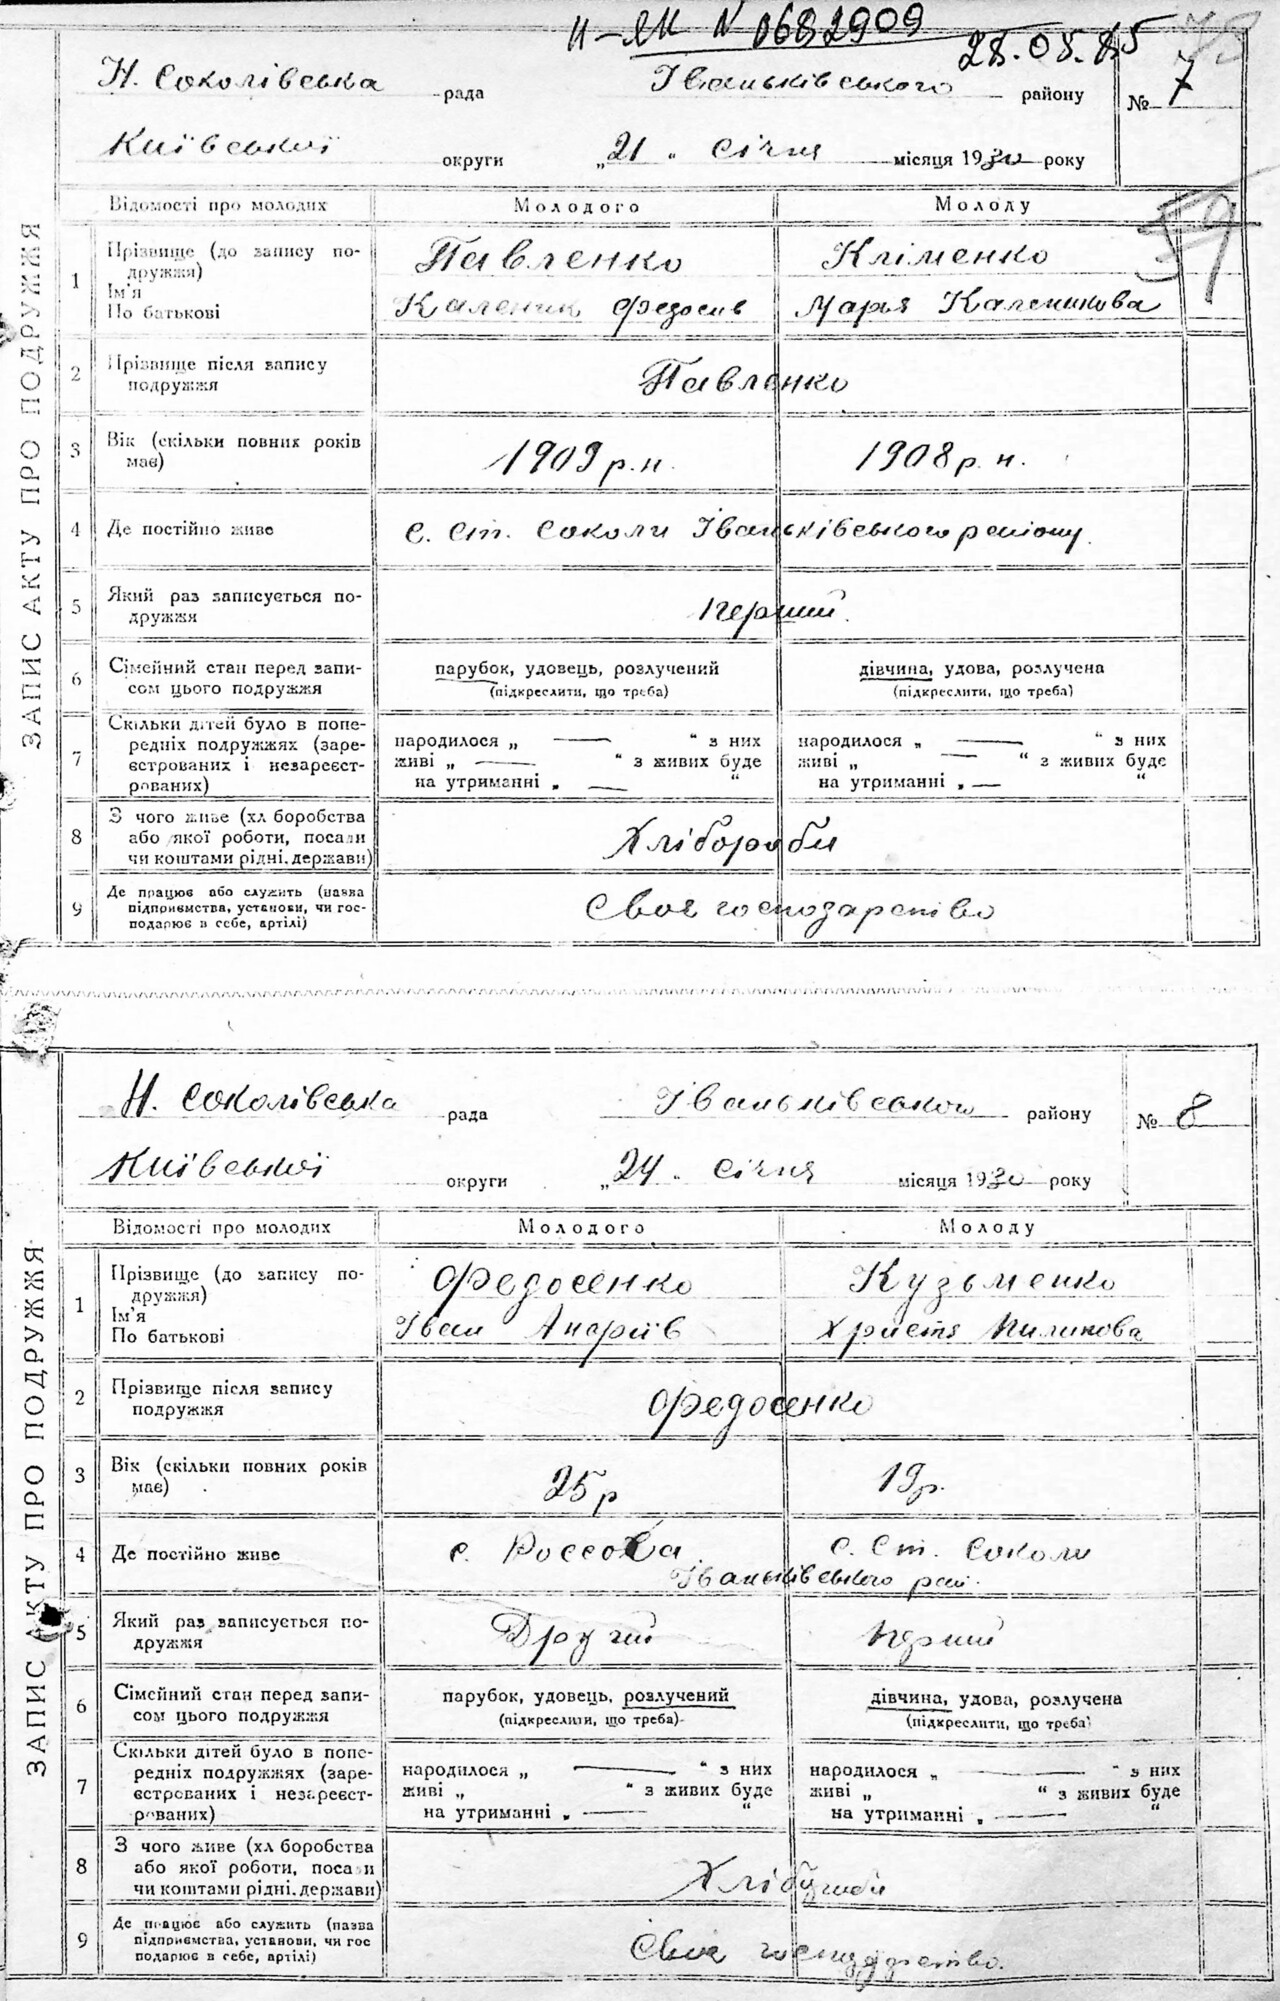 ІІ-ЯК N 0682909
28.05.85
Н. Соколівська рада Іваньківського району № 7
Київської округи „21" січня місяця 1930 року
59
ЗАПИС АКТУ ПРО ПОДРУЖЖЯ
Відомості про молодих Молодого Молоду
1 Прізвище (до запису по- Павленко Кліменко
дружжя)
Ім'я
По батькові Каленик Федосів Марья Каленикова
2 Прізвище після запису
подружжя Павленко
3 Вік (скільки повних років
має) 1909 р.н. 1908 р. н.
4 Де постійно живе с. Ст. Соколи Іваньківського району.
5 Який раз записується по-
дружжя перший.
6 Сімейний стан перед запи- парубок, удовець, розлучений дівчина, удова, розлучена
сом цього подружжя (підкреслити, що треба) (підкреслити, що треба)
7 Скільки дітей було в попе-
редніх подружжях (заре- народилося „ — “ з них народилося „ — “ з них
єстрованих і незареєст- живі „ — “ з живих буде живі „ — “ з живих буде
рованих) на утриманні „ — “ на утриманні „ — “
8 З чого живе (хліборобства
або якої роботи, посади Хлібороби
чи коштами рідні, держави)
9 Де працює або служить (назва
підприємства, установи, чи гос- Своє господарство
подарює в себе, артілі)
Н. Соколівська рада Іваньківського району № 8
Київської округи „24" січня місяця 1930 року
ЗАПИС АКТУ ПРО ПОДРУЖЖЯ
Відомості про молодих Молодого Молоду
1 Прізвище (до запису по- Федосенко Кузьменко
дружжя)
Ім'я
По батькові Іван Андріїв Христя Пилипова
2 Прізвище після запису
подружжя Федосенко
3 Вік (скільки повних років
має) 25 р 19 р.
4 Де постійно живе с. Россоха с. Ст. Соколи
Іваньківського рай.
5 Який раз записується по-
дружжя Другий перший
6 Сімейний стан перед запи- парубок, удовець, розлучений дівчина, удова, розлучена
сом цього подружжя (підкреслити, що треба) (підкреслити, що треба)
7 Скільки дітей було в попе-
редніх подружжях (заре- народилося „ — “ з них народилося „ — “ з них
єстрованих і незареєст- живі „ “ з живих буде живі „ “ з живих буде
рованих) на утриманні „ — “ на утриманні „ — “
8 З чого живе (хліборобства
або якої роботи, посади Хлібороби
чи коштами рідні, держави)
9 Де працює або служить (назва
підприємства, установи, чи гос Своє господарство.
подарює в себе, артілі)